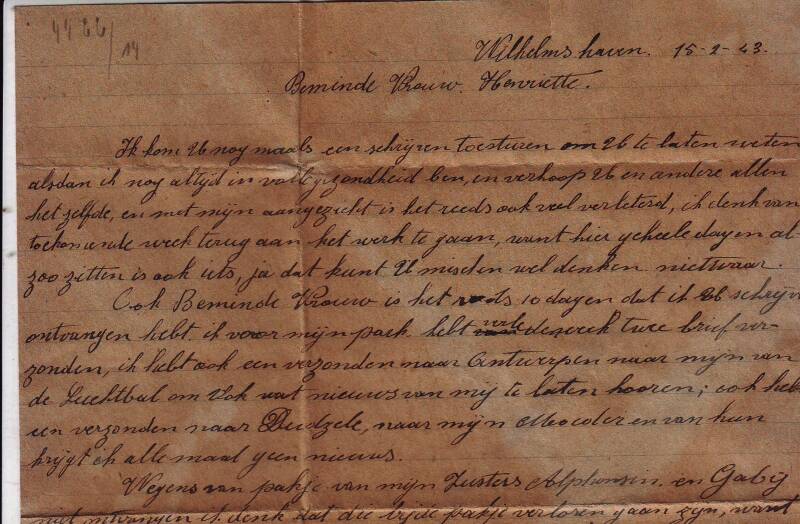 4466/14
Wilhelmshaven. 15-2-43.
Beminde Vrouw. Henriette.
Ik kom U nog maals een schrijven toesturen om U te laten weten
alsdan ik nog altijd in volle gezondheid ben, en verhoop U en andere allen
het zelfde, en met mijn aangezicht is het reeds ook veel verbeterd, ik denk van
toekomende week terug aan het werk te gaan, want hier geheele dagen al-
zoo zitten is ook iets, ja dat kunt U misschien wel denken nietwaar.
Ook Beminde Vrouw is het reeds 10 dagen dat ik U schrijven
ontvangen hebt. ik voor mijn part hebt deweek twee brief ver-
zonden, ik hebt ook een verzonden naar Antwerpen naar mijn van
de Luchtbal om ook wat nieuws van mij te laten hooren; ook heb
een verzonden naar Dudzele, naar mijn Moeder en van hun
krijgt ik alle maal geen nieuws.
Wegens van pakje van mijn Zusters Alphonsin. en Gabij
niet ontvangen ik denk dat die bijde pakje verloren gaan zijn, want